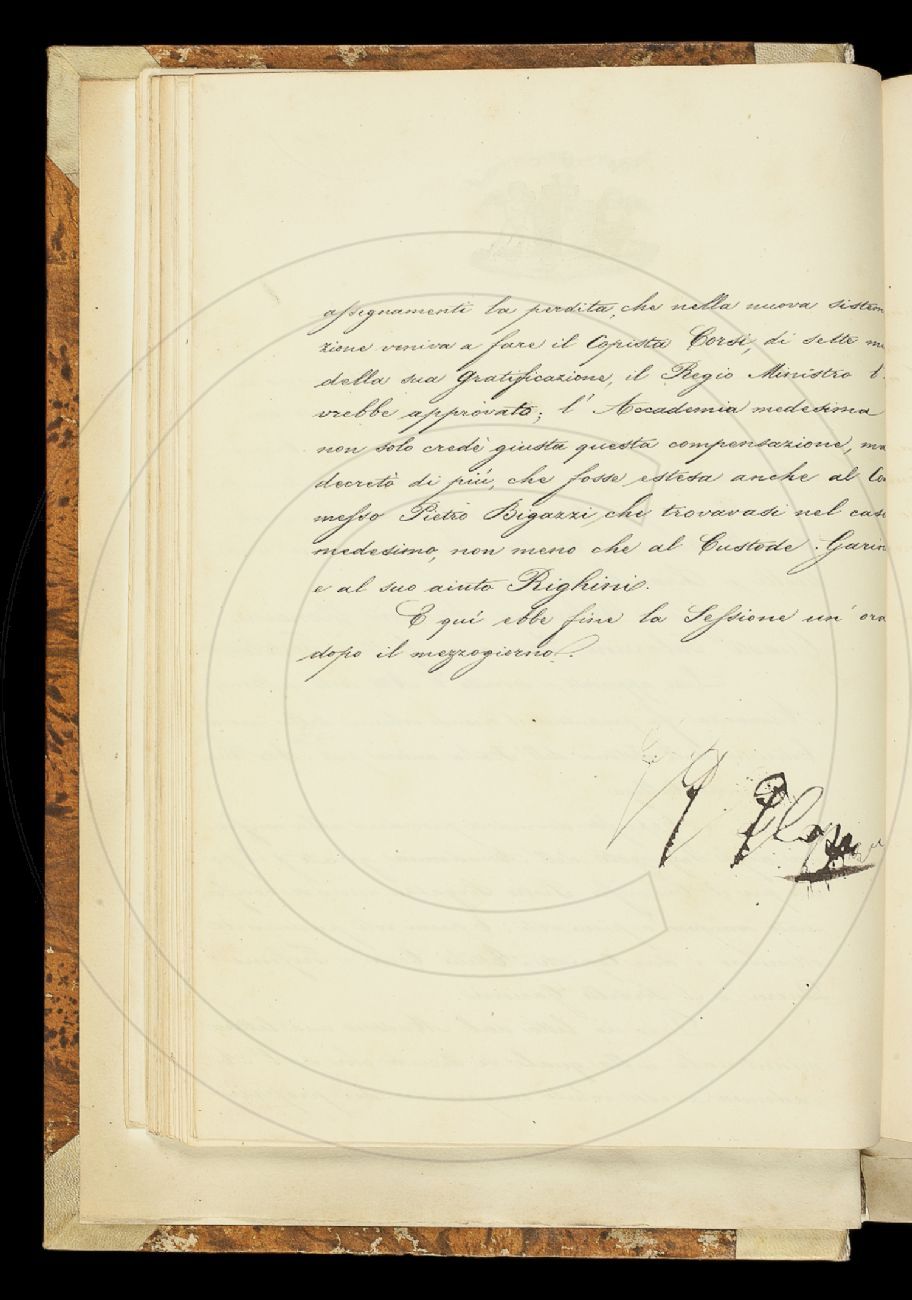 assegnamenti la perdita, che nella nuova sistem
zione veniva a fare il Copista Corsi, di sette me
della sua Gratificazione, il Regio Ministro l'
vrebbe approvato; l'Accademia medesima
non solo credè giusta questa compensazione, ma
decretò di più, che fosse estesa anche al Co
messo Pietro Bigazzi che trovavasi nel caso
medesimo, non meno che al Custode Garin
e al suo aiuto Righini.
E qui ebbe fine la Sessione un'ora
dopo il mezzogiorno.